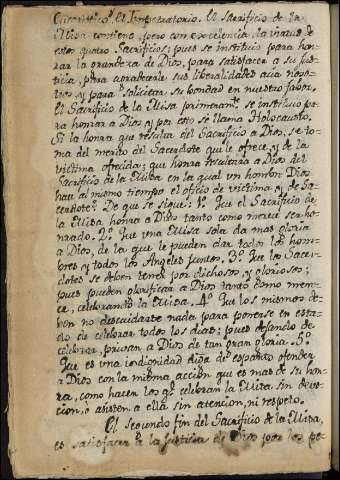 Eucaristico. El Impetratorio. El Sacrificio de la
Misa contiene, pero con excelencia, la virtud de
estos quatro Sacrificios; pues se instituio para hon-
rar la grandeza de Dios, para satisfacer a su Jus-
ticia, para agradecerle sus liberalidades acia noso-
tros y para solicitar su bondad en nuestro favor.
El Sacrificio de la Misa primeram.te se instituio pa-
ra honrar a Dios y por esto se llama Holocausto.
Si la honra que resulta del Sacrificio a Dios, se to-
ma del merito del Sacerdote que le ofrece, y de la
victima ofrecida; que honra resultara a Dios del
Sacrificio de la Misa en la qual un hombre Dios
hace al mismo tiempo el oficio de victima y de Sa-
cerdote? De que se sigue: 1.º Que el Sacrificio de
la Misa honra a Dios tanto como merece ser ho-
nrado. 2.º Que una Missa sola da mas gloria
a Dios, de la que le pueden dar todos los hom-
bres y todos los Angeles juntos. 3.º Que los Sacer-
dotes se deben tener por dichosos, y gloriosos;
pues pueden glorificar a Dios tanto como mere-
ce, celebrando la Misa. 4.º Que los mismos de-
ben no descuidarse nada para ponerse en esta-
do de celebrar todos los dias; pues dejando de
celebrar, privan a Dios de tan gran gloria. 5.º
Que es una indignidad digna de espanto ofender
a Dios con la misma acción que es mas de su hon-
ra, como hacen los q.e celebran la Misa sin devo-
cion, ò asisten a ella sin atencion, ni respeto.
El segundo fin del Sacrificio de la Misa,
es satisfacer a la Justicia de Dios por los pe-